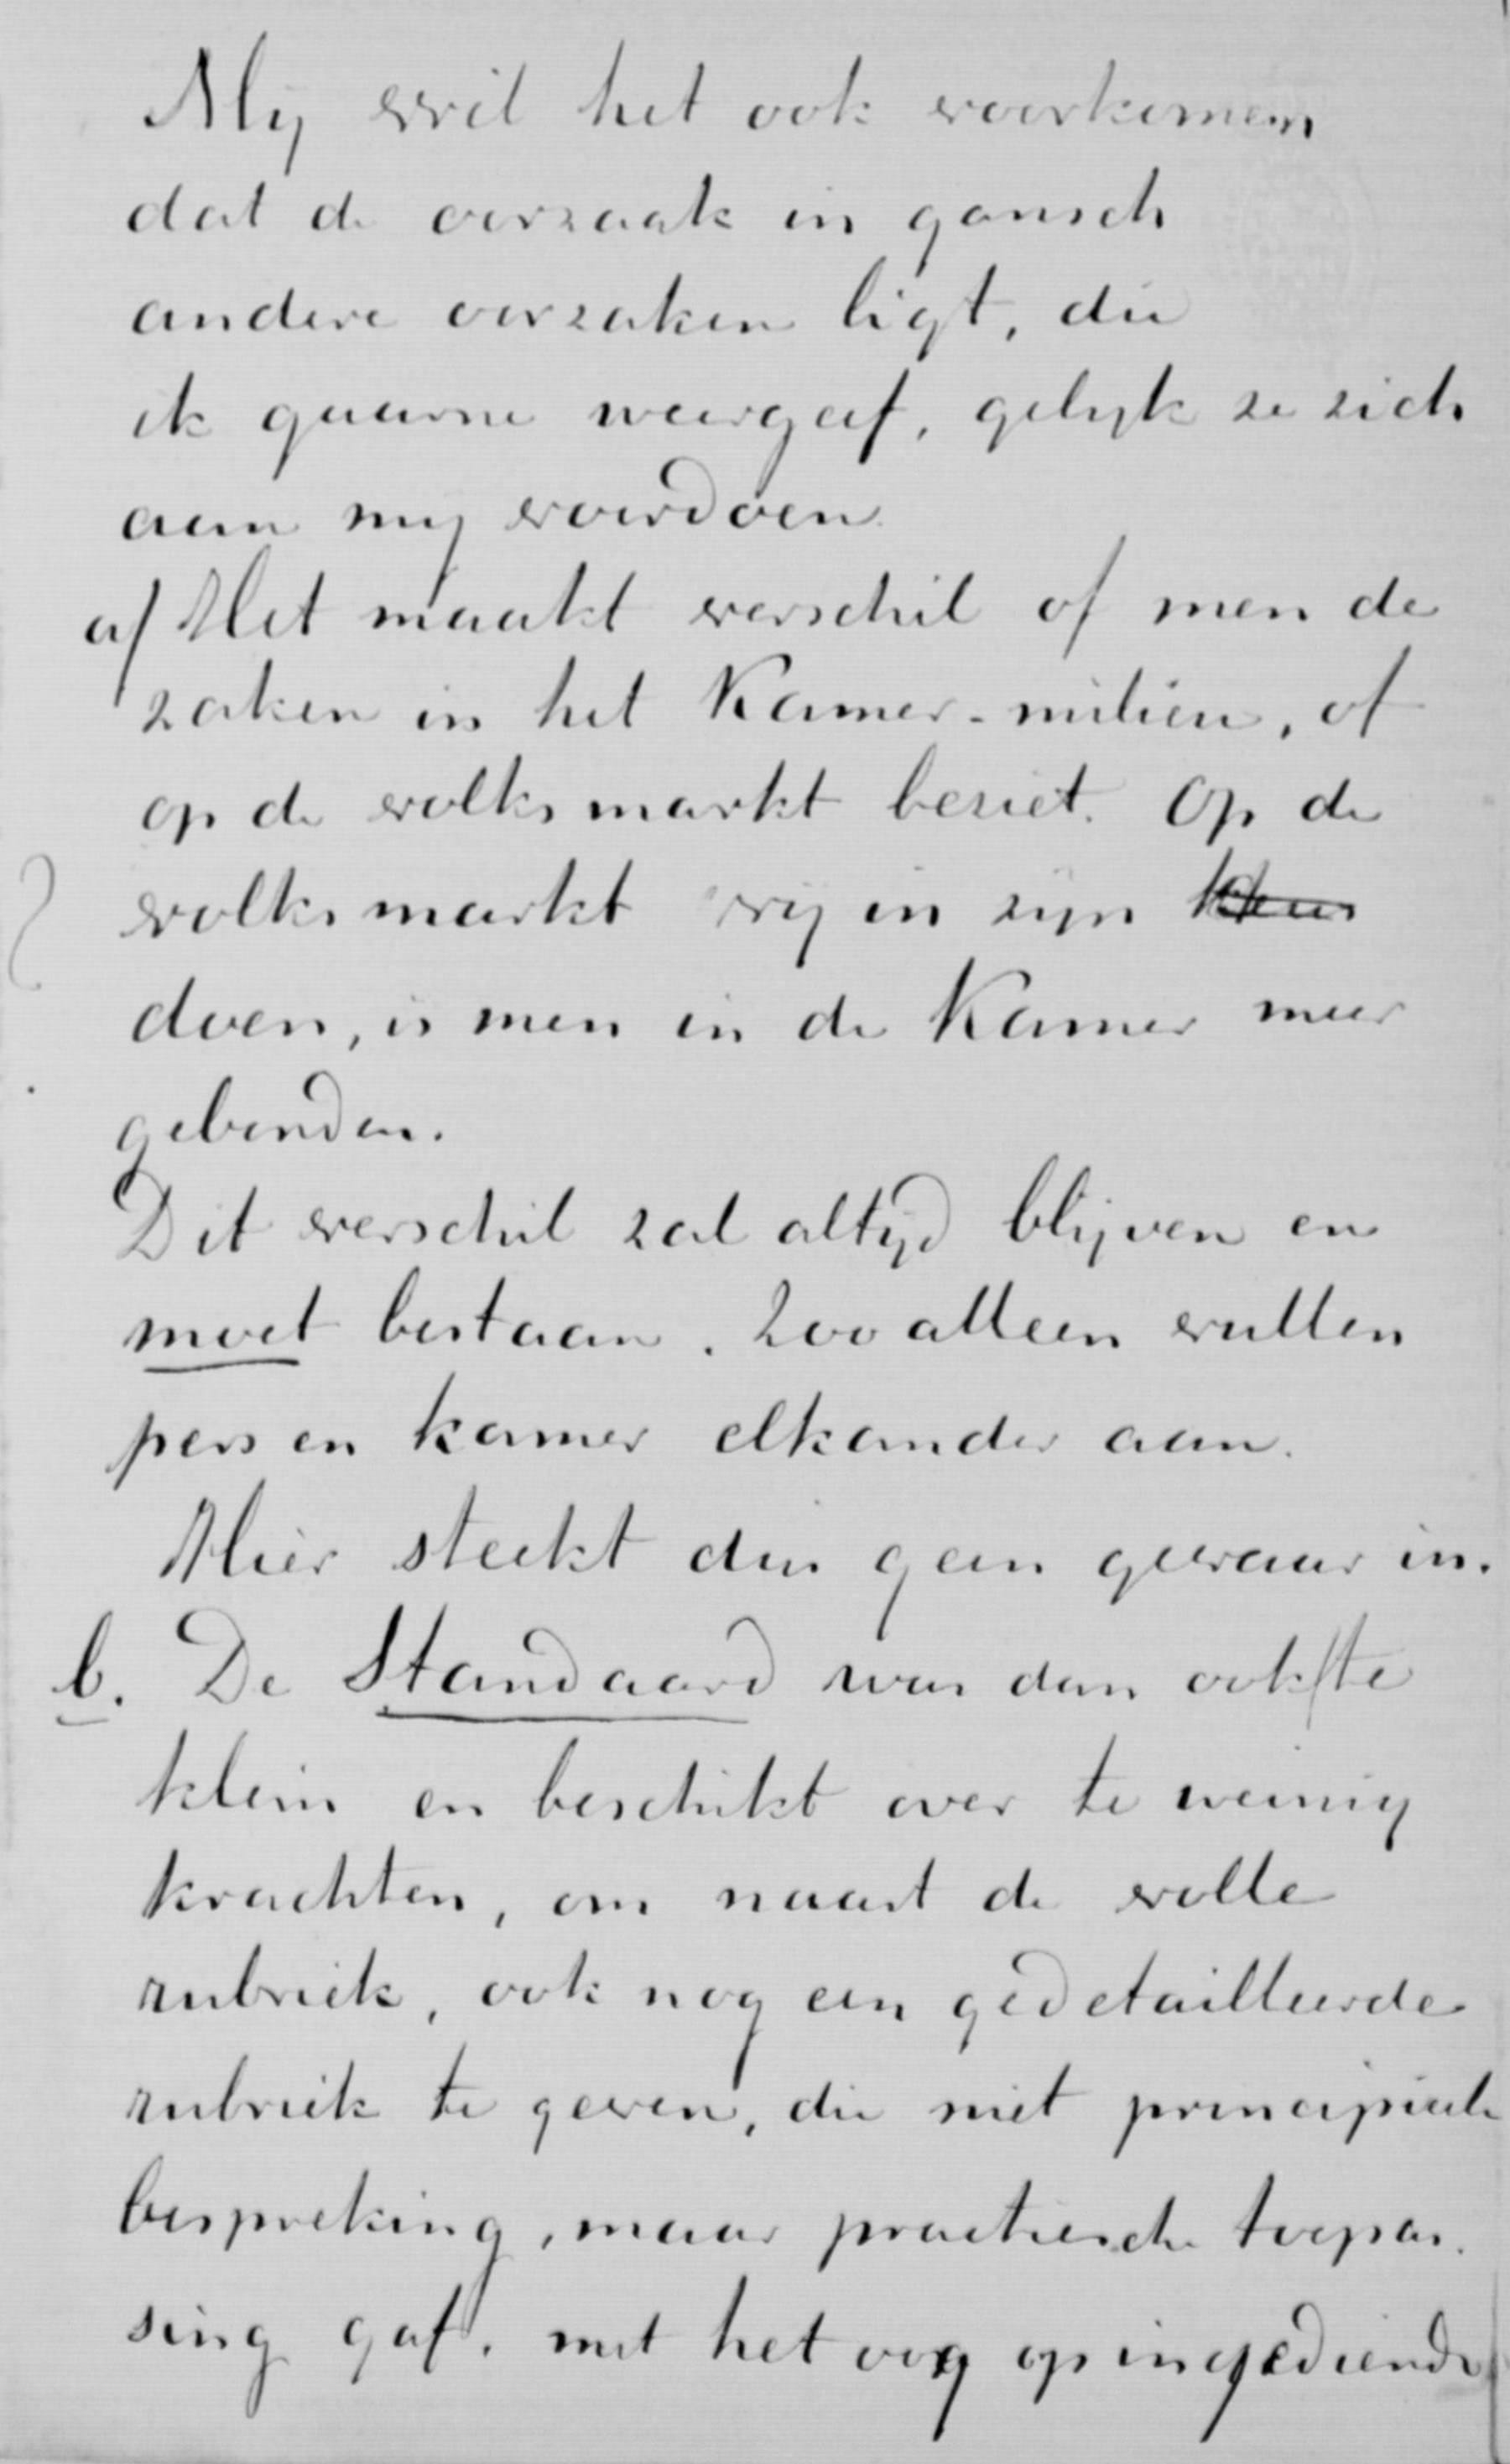 Mij wil het ook voorkomen
dat de oorzaak in gansch
andere oorzaken ligt, die
ik gaarne weergeef, gelijk ze zich
aan mij voordoen.
a/ Het maakt verschil of men de
zaken in het Kamer-milieu, of
op de volksmarkt beziet. Op de
volksmarkt vrij in zijn
doen, is men in de Kamer meer
gebonden.
Dit verschil zal altijd blijven en
moet bestaan. Zoo alleen vullen
pers en kamer elkander aan.
Hier steekt dus geen gevaar in.
b. De Standaard was dan ook te
klein en beschikt over te weinig
krachten, om naast de volle
rubriek, ook nog een gedetailleerde
rubriek te geven, die niet principieele
bespreking, maar practische toepas-
sing gaf, met het oog op ingediende